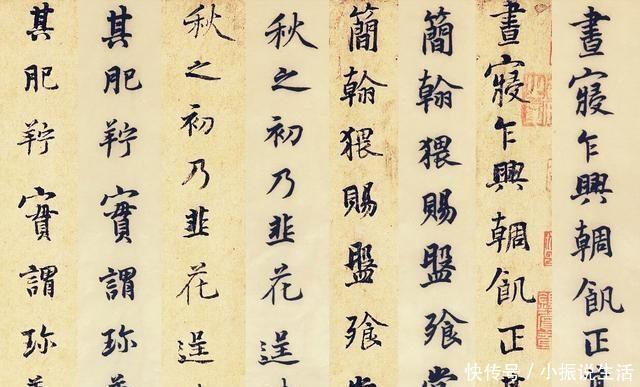 晝寢乍興輖飢正
晝寢乍興輖飢正
簡翰猥賜盤飱
簡翰猥賜盤飱
秋之初乃韭花逞
秋之初乃韭花逞
其肥羜實謂珍
其肥羜實謂珍
快传号／小振说生活